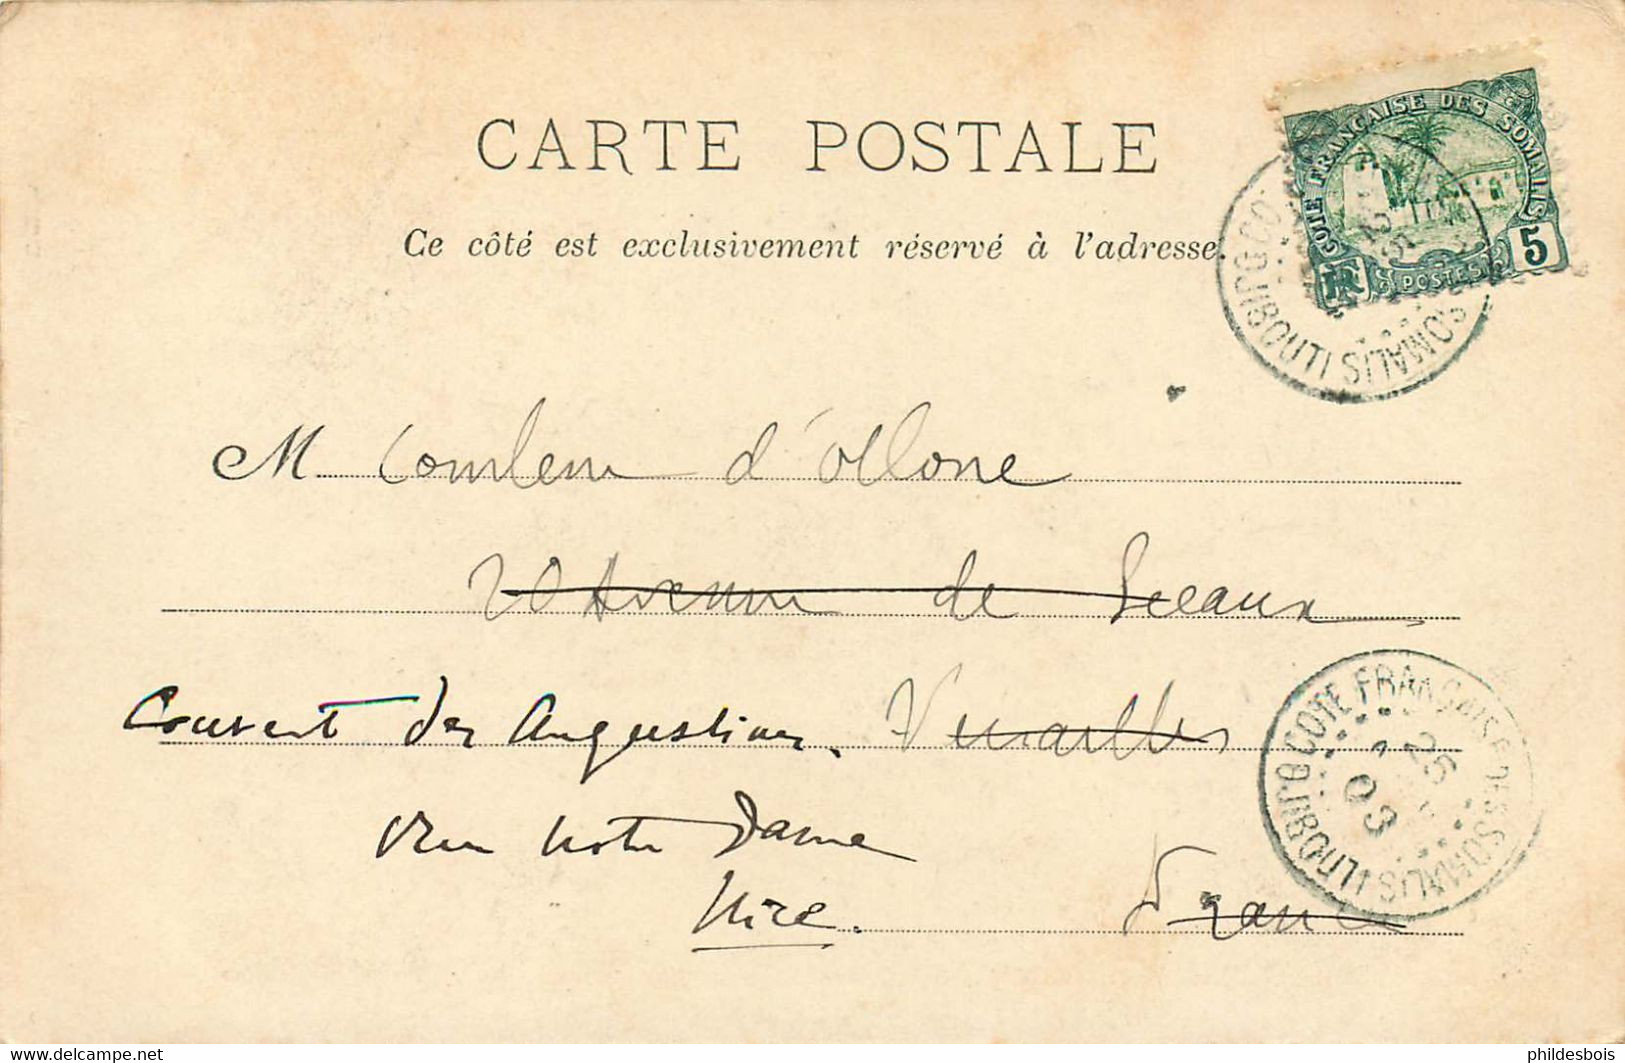 CARTE POSTALE
Ce côté est exclusivement réservé à l'adresse.
COTE FRANÇAISE DES SOMALIS
RF POSTES 5
DJIBOUTI SOMALIS
M d'Ollone
20 Avenue de Sceaux
Couvent des Augustines. Versailles
rue Notre Dame
Vire. France
COTE FRANÇAISE DES SOMALIS
26
03
DJIBOUTI
https://www.delcampe.net
phildesbois